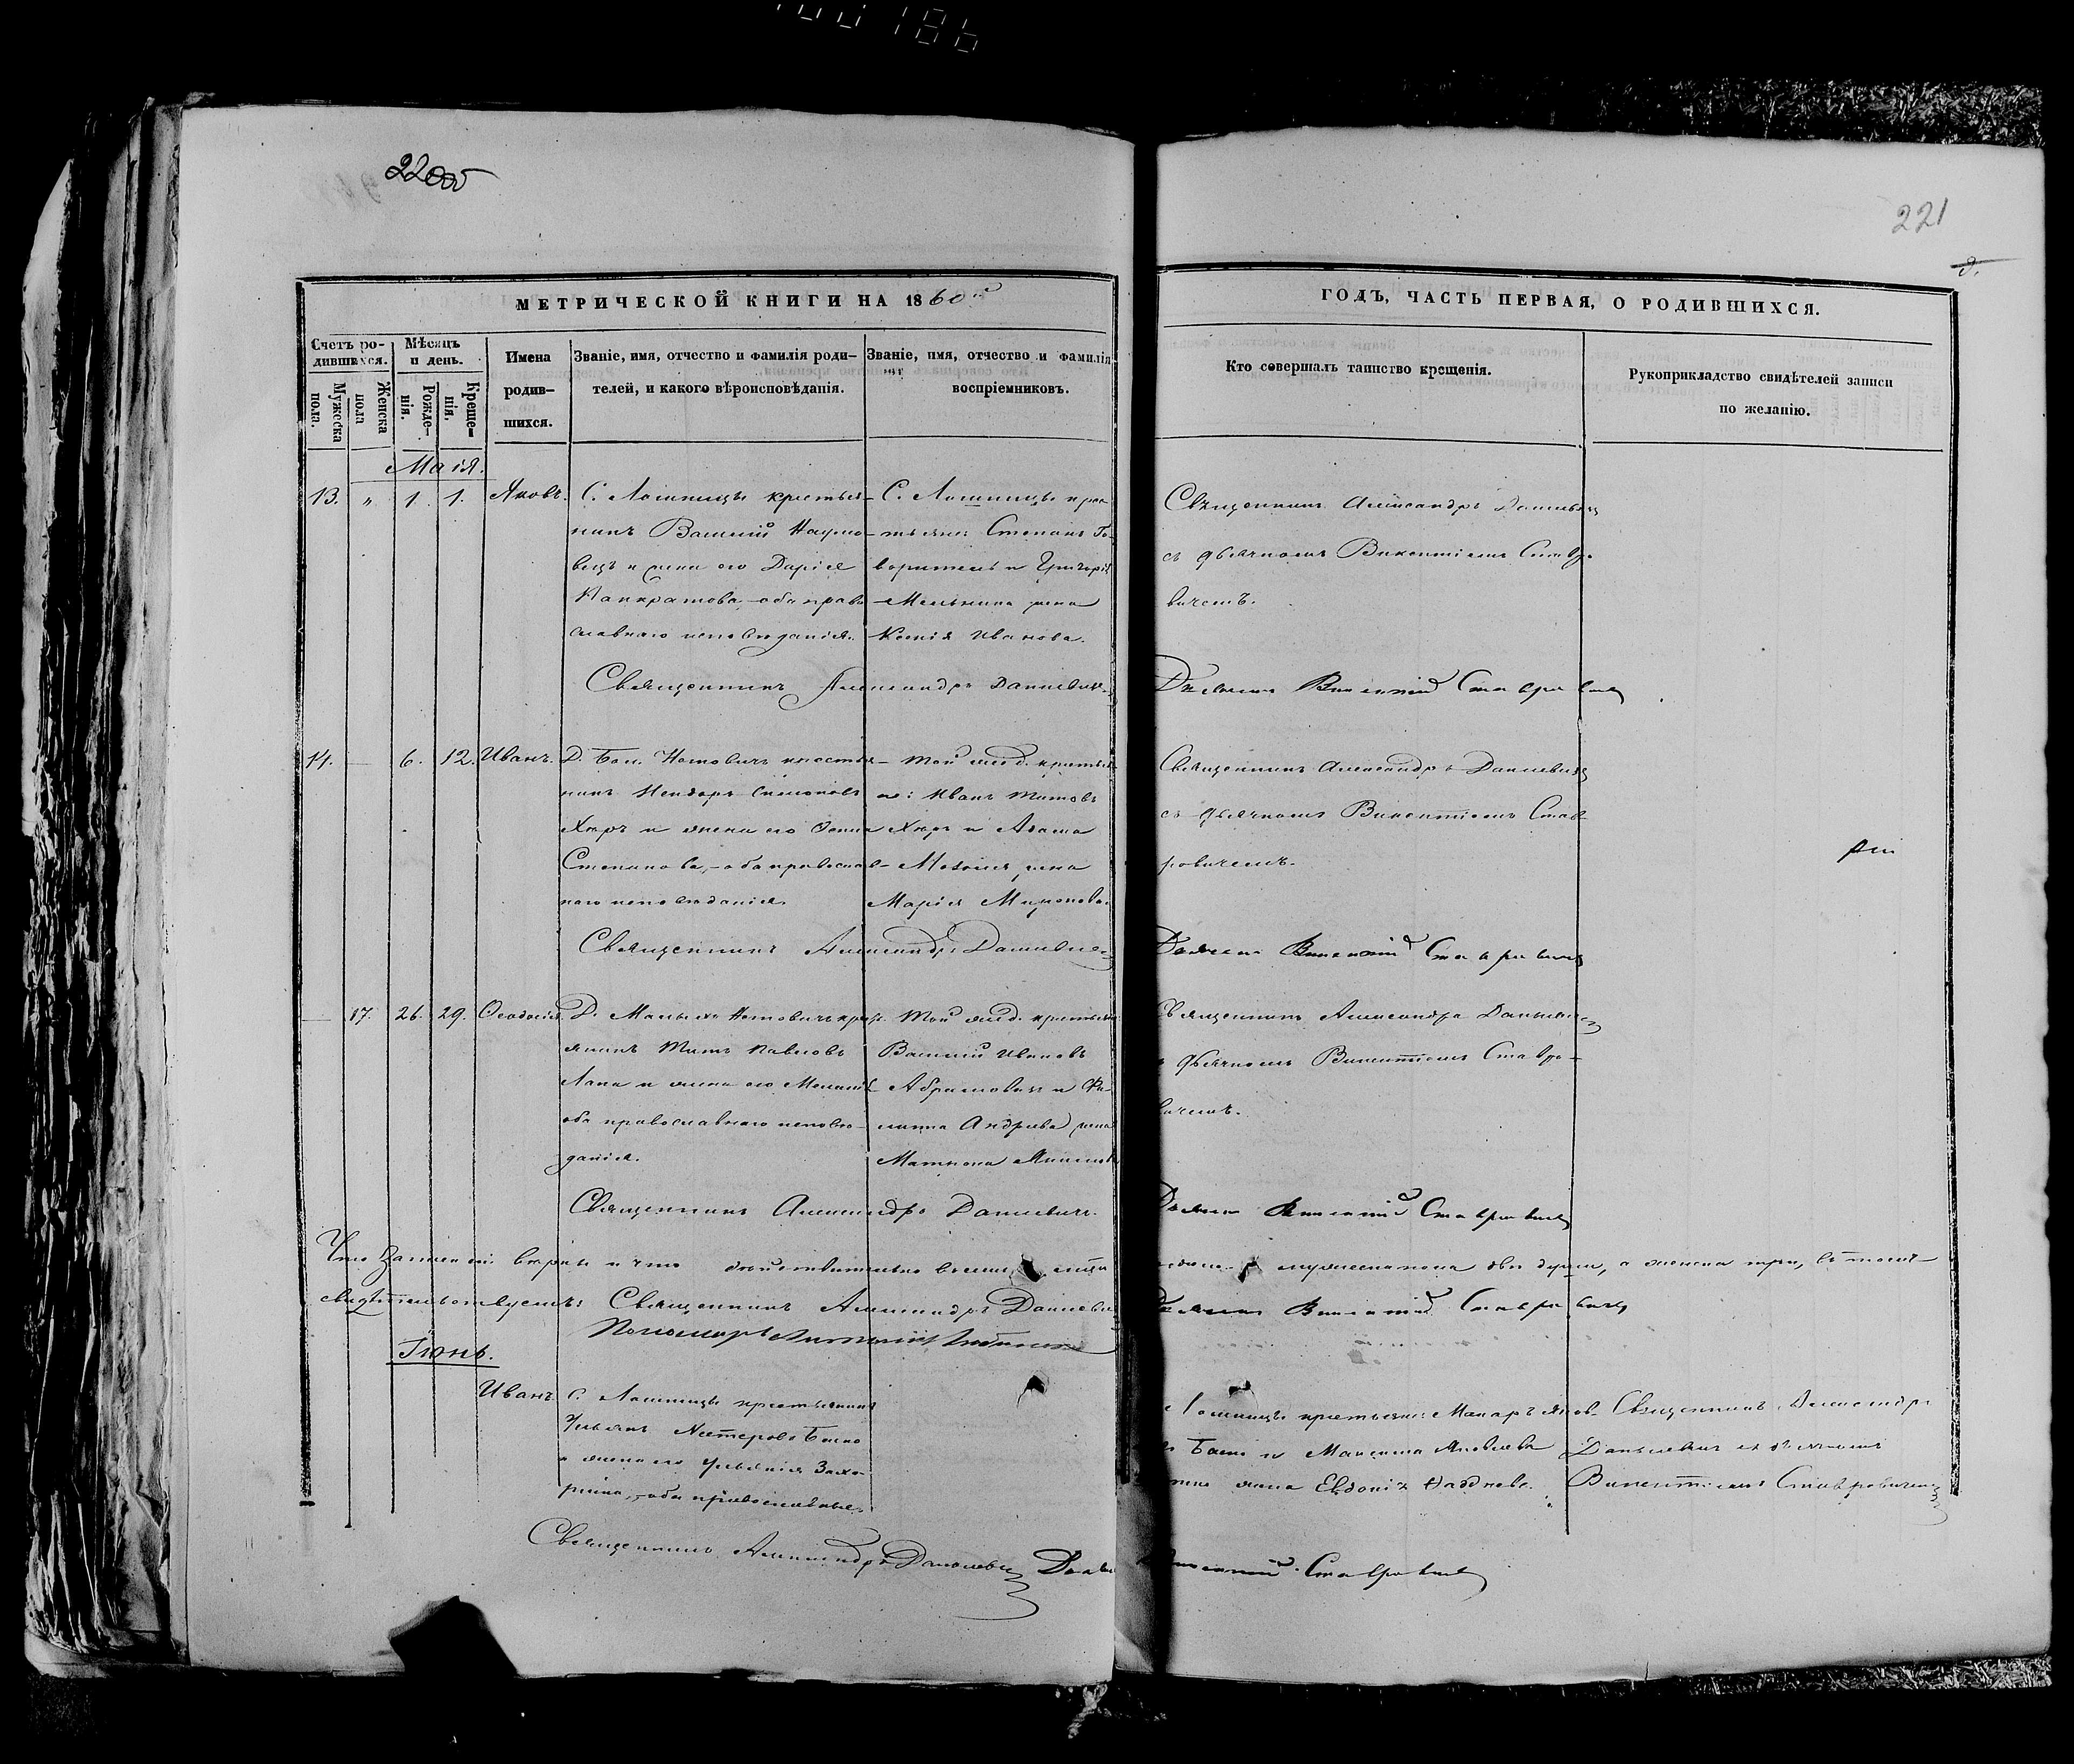 186
220об
221
МЕТРИЧЕСКОЙ КНИГИ НА 1860й
ГОДЪ, ЧАСТЬ ПЕРВАЯ, О РОДИВШИХСЯ.
Счетъ родившихся.
Мужеска пола.
Женска пола
Мѣсяцъ и день.
Рожденія.
Крещенія.
Имена родившихся.
Званіе, имя, отчество и фамилія роди-
телей, и какого вѣроисповѣданія.
Званіе, имя, отчество и фамилія
воспріемниковъ.
Кто совершалъ таинство крещенія.
Рукоприкладство свидѣтелей записи
по желанію.
Маія.
13. " 1. 1. Яковъ.
С. Лошницы крестья-
нинъ Василій Наумо-
вецъ и жена его Дарія
Панкратова, оба право-
славнаго исповѣданія.
С. Лошницы кре-
стьяне Степанъ Го-
воритель и Григорія
Мельника жена
Ксенія Иванова.
Священникъ Александръ Данилевичъ
съ дьячкомъ Викентіемъ Ставро-
вичемъ.
Священникъ Александръ Данилевичъ
Дьячекъ Викентій Ставровичъ
14. — 6. 12. Иванъ.
Д. Бол. Нотовичъ крестья-
нинъ
Хюръ и жена его
Степанова, оба православ-
наго исповѣданія.
Той же д. крестья-
не: Иванъ Титовъ
Хюръ и Адама
жена
Марія Миронова.
Священникъ Александръ Данилевичъ
съ дьячкомъ Викентіемъ Став-
ровичемъ.
Священникъ Александръ Данилевичъ
Дьячекъ Викентій Ставровичъ
— 17. 26. 29. Ѳеодосія
Д. Малыхъ Нотовичъ крест-
янинъ Титъ Павловъ
Лапа и жена его
оба православнаго исповѣ-
данія.
Той же д. крестьяне
Василій Ивановъ
Абрамовичъ и Фи-
липпа Андреева жена
Матрона
Священникъ Александръ Данилевичъ
дьячкомъ Викентіемъ Ставро-
вичемъ.
Священникъ Александръ Данилевичъ.
Дьячекъ Викентій Ставровичъ
Что записи вѣрны и что дѣйствительно въ семъ мѣсяцѣ
мужеска пола двѣ души, а женска три, въ томъ
свидѣтельствуемъ: Священникъ Александръ Данилевичъ
Дьячекъ Викентій Ставровичъ
Пономарь
Іюнь.
Иванъ
С. Лошницы крестьянинъ
Ульянъ Нестеровъ Баско
и жена его Ульянія Заха-
рьина, оба православные.
Лошницы крестьяне: Макаръ Яков-
Баско и Максима Яковлева
жена Евдокія Фаддеева.
Священникъ Александръ
Данилевичъ съ дьячкомъ
Викентіемъ Ставровичемъ
Священникъ Александръ Данилевичъ Дьячекъ
Викентій Ставровичъ